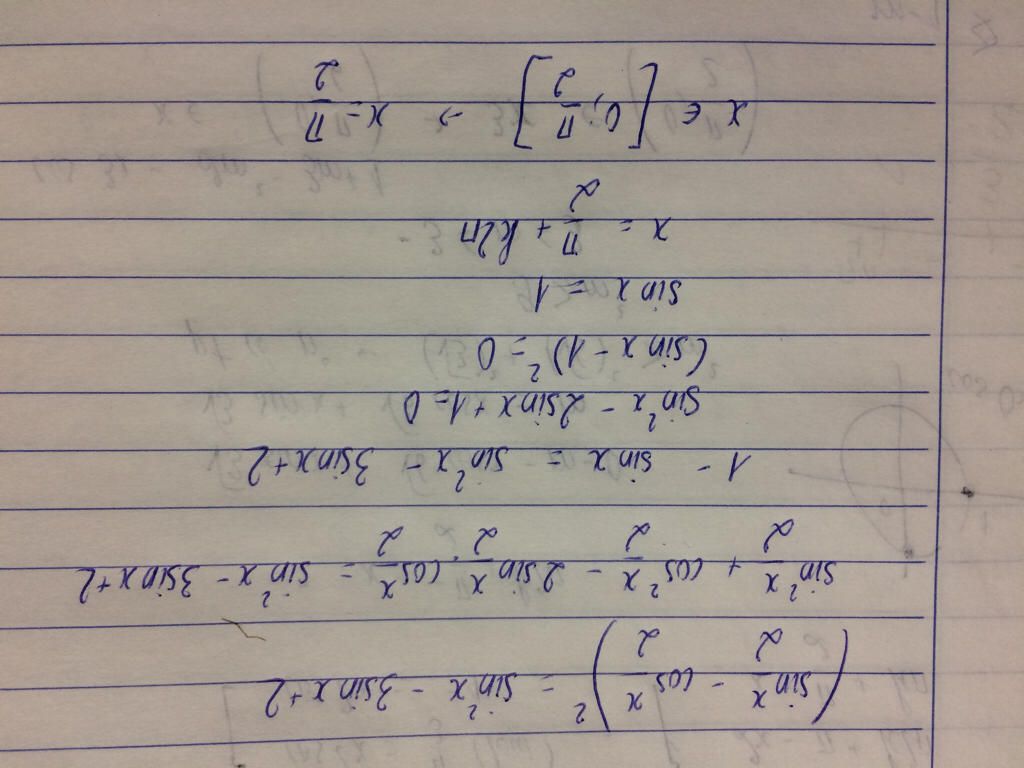 (sin x/2 - cos x/2)² = sin²x - 3sinx+2
sin² x/2 + cos² x/2 - 2sin x/2 . cos x/2 = sin²x - 3sinx+2
1 - sinx = sin²x - 3sinx+2
sin²x - 2sinx+1=0
(sinx - 1)² = 0
sinx = 1
x = π/2 + k2π
x ∈ [0; π/2] → x = π/2